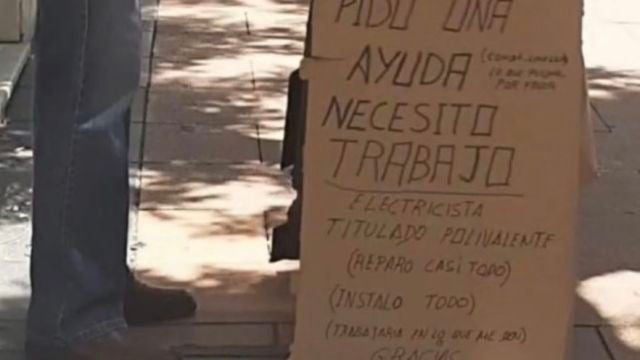 PIDO UNA
AYUDA (COMIDA, LO QUE PUEDAN, POR FAVOR
NECESITO
TRABAJO
ELECTRICISTA
TITULADO POLIVALENTE
(REPARO CASI TODO)
(INSTALO TODO)
(TRABAJARIA EN LO QUE ME DEN)
GRACIAS